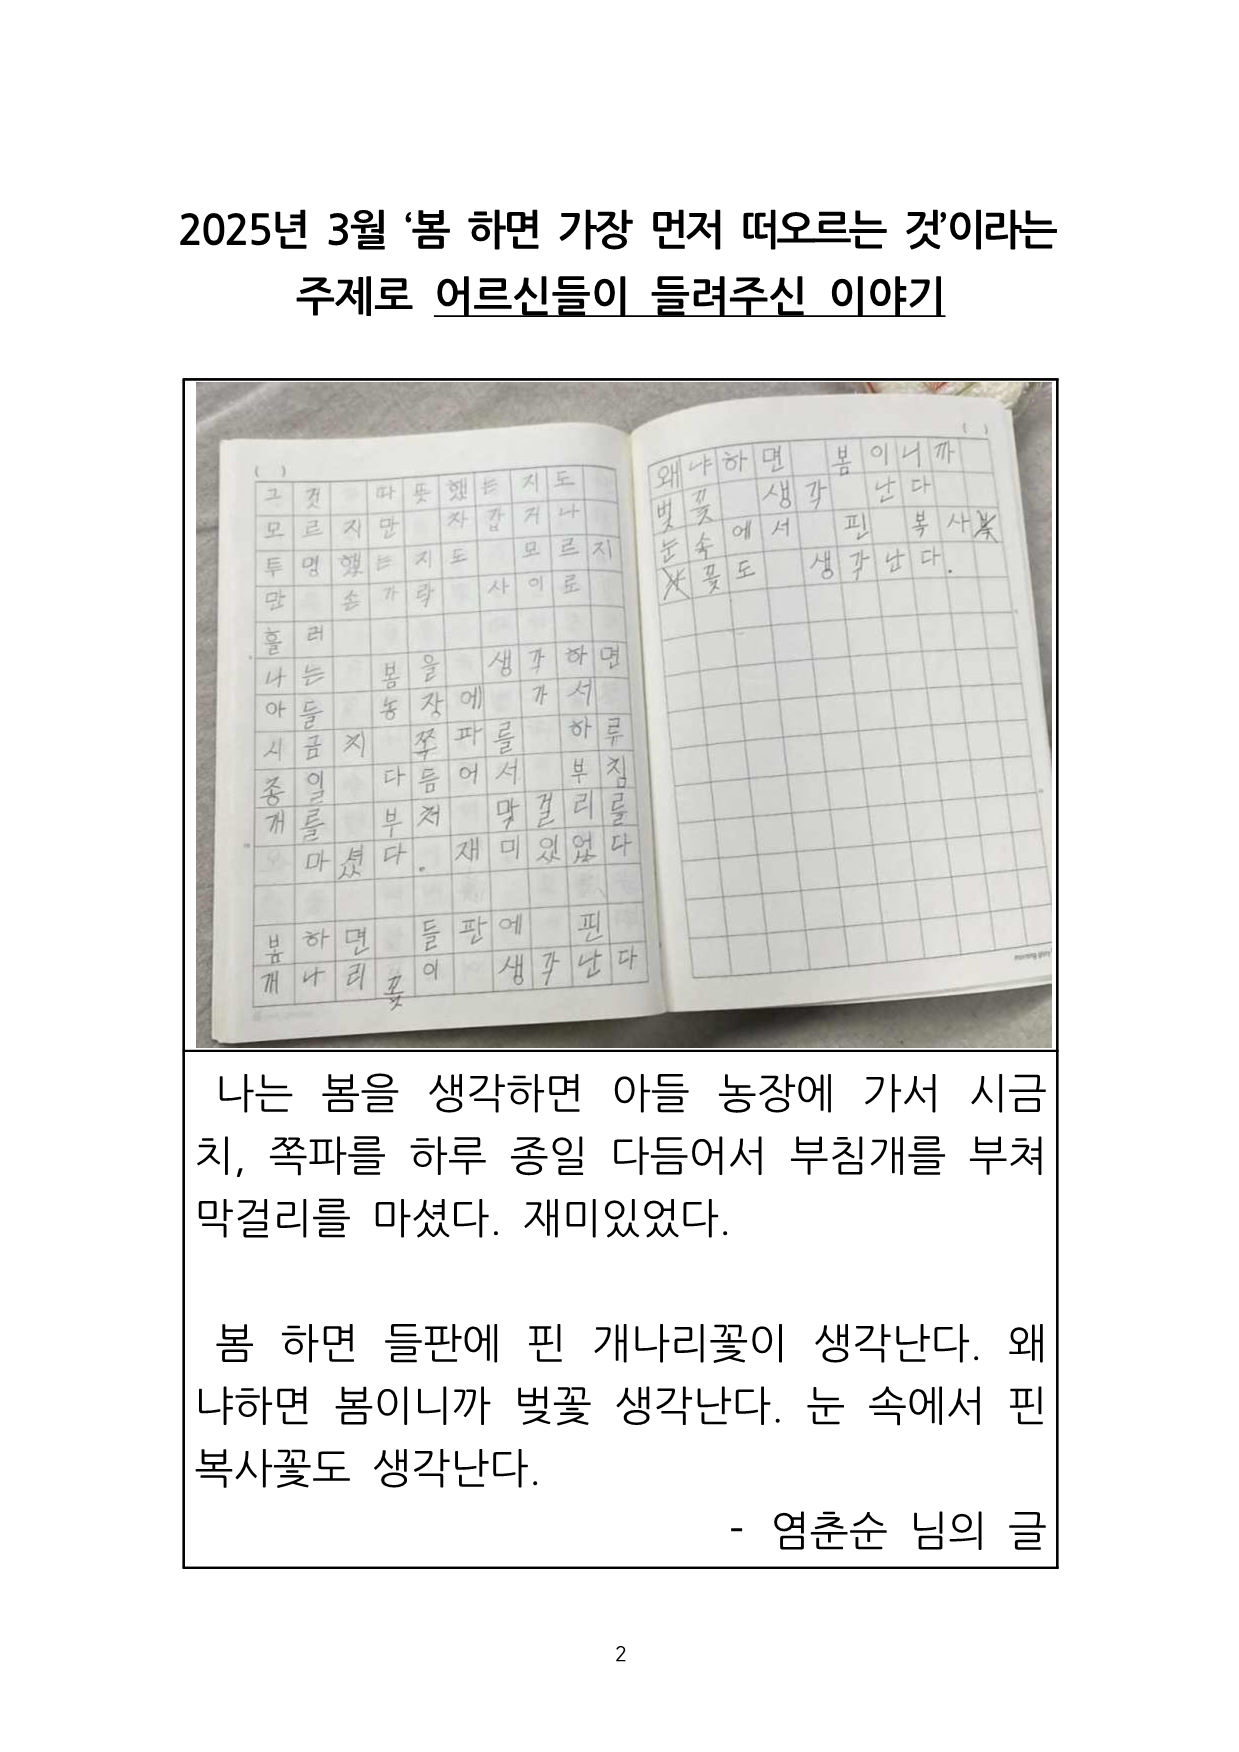 2025년 3월 ‘봄 하면 가장 먼저 떠오르는 것’이라는
주제로 어르신들이 들려주신 이야기
( )
그것 따뜻했는지도
모르지만 차갑거나
투명했는지도 모르지
만 손가락 사이로
흘러
나는 봄을 생각하면
아들 농장에 가서
시금치 쪽파를 하류
종일 다듬어서 부침
개를 부쳐 막걸리를
마셨다. 재미있었다
봄하면 들판에 핀
개나리꽃이 생각난다
( )
왜냐하면 봄이니까
벚꽃 생각 난다
눈속에서 핀 복사
꽃도 생각난다.
morning glory
나는 봄을 생각하면 아들 농장에 가서 시금
치, 쪽파를 하루 종일 다듬어서 부침개를 부쳐
막걸리를 마셨다. 재미있었다.
봄 하면 들판에 핀 개나리꽃이 생각난다. 왜
냐하면 봄이니까 벚꽃 생각난다. 눈 속에서 핀
복사꽃도 생각난다.
- 염춘순 님의 글
2